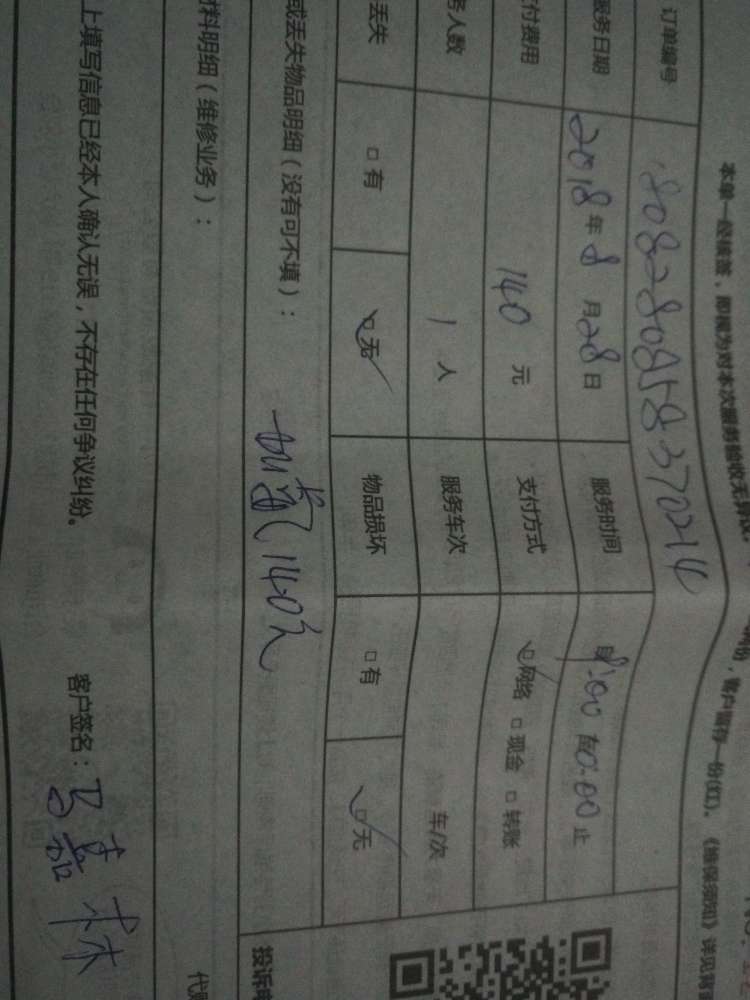 本单一经核签,即视为对本次服务验收无异议。
份,客户留存一份(红)。《维保须知》详见背
订单编号 1808280858370214
服务日期 2018年8月28日 服务时间 自9:00 至10:00 止
付费用 140 元 支付方式 ☑网络 □现金 □转账
务人数 1 人 服务车次 车/次
丢失 □有 ☑无 物品损坏 □有 ☑无
或丢失物品明细(没有可不填):
加氟140元
材料明细(维修业务):
上填写信息已经本人确认无误,不存在任何争议纠纷。
客户签名:
投诉